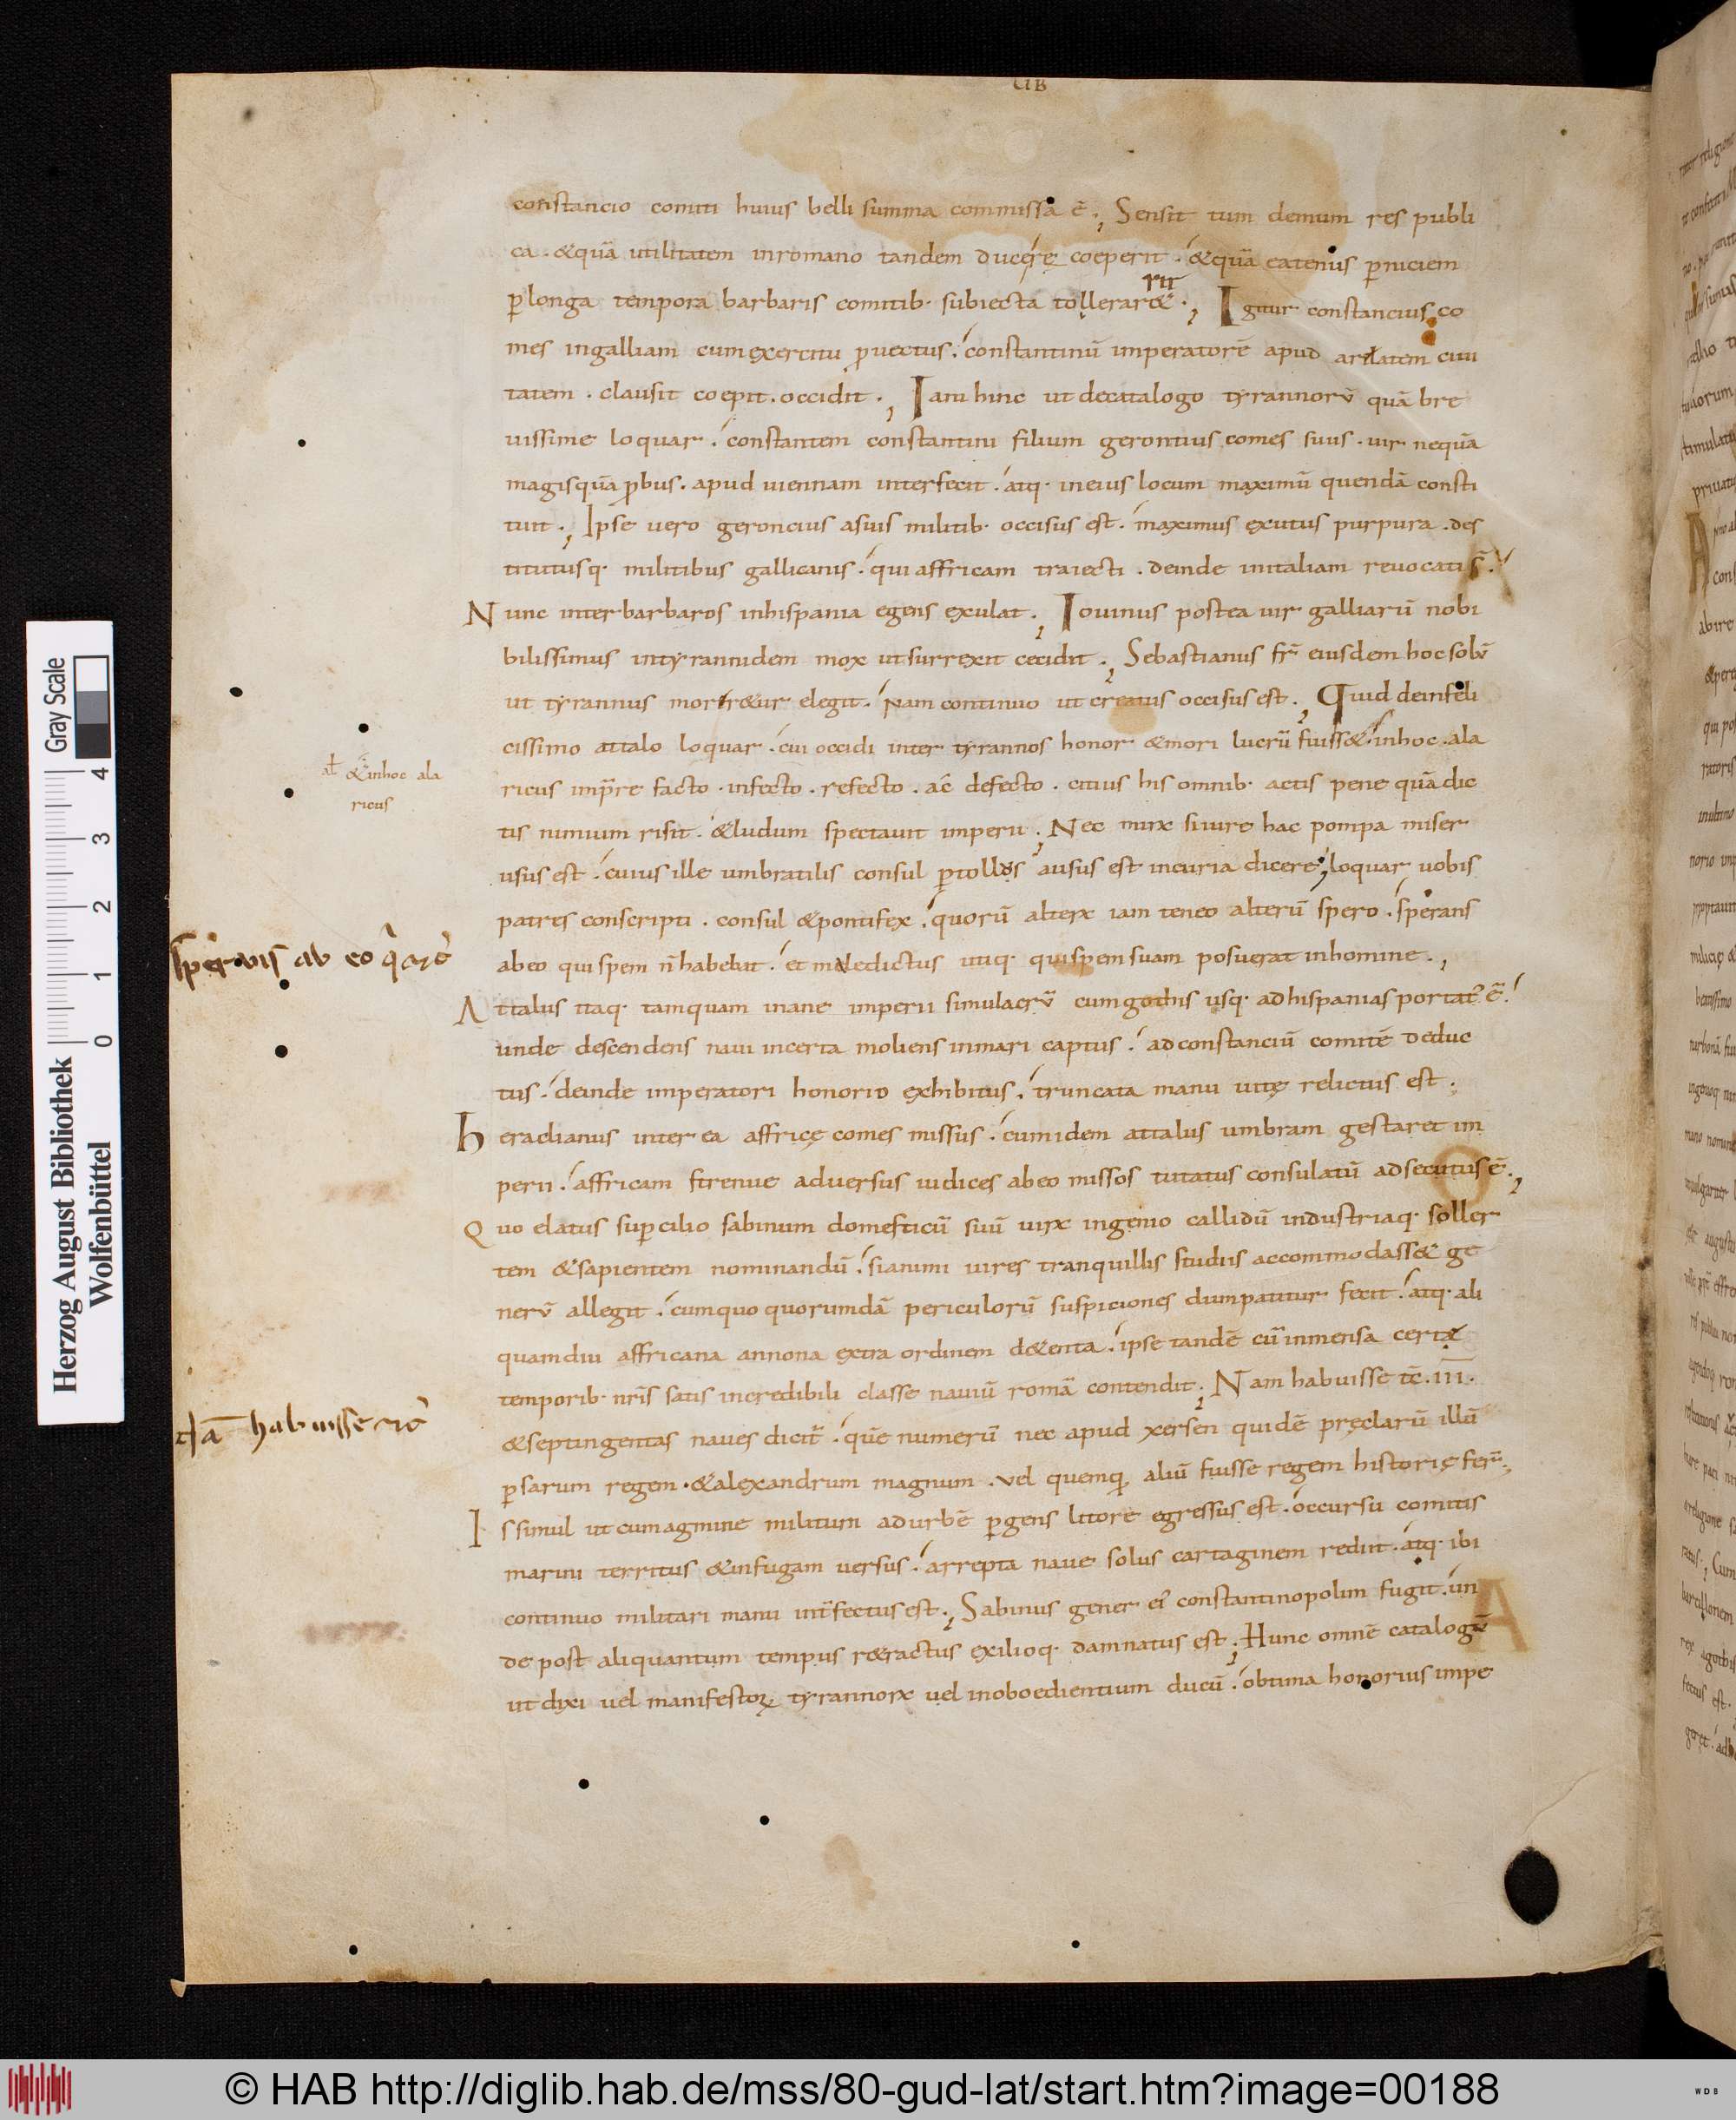 constancio comiti huius belli summa commissa ē. Sensit tum demum res publi
ca. & quā utilitatem inromano tandem ducere coeperit. & quā eatenus pniciem
p longa tempora barbaris comitib. subiecta tolleraret. Igitur constancius co
rit
mes ingalliam cumexercitu puectus. constantinū imperatorē apud arelatem ciui
tatem. clausit coepit. occidit. Iam hinc ut decatalogo tyrannorū quā bre
uissime loquar. constantem constantini filium gerontius comes suus. uir nequā
magisquā pbus. apud uiennam interfecit. atq. ineius locum maximū quendā consti
tuit. Ipse uero geroncius asuis militib. occisus est. maximus exutus purpura. des
titutusq. militibus gallicanis. qui affricam traiecti. deinde initaliam reuocati s̄.
Nunc inter barbaros inhispania egens exulat. Iouinus postea uir galliarū nobi
bilissimus intyrannidem mox utsurrexit cecidit. Sebastianus fr̄ eiusdem hoc solū
ut tyrannus morer&ur elegit. Nam continuo ut creatus occisus est. Quid deinfeli
cissimo attalo loquar. cui occidi inter tyrannos honor & mori lucrū fuiss&. inhoc. ala
al & inhoc ala
ricus
ricus imp̄re facto. infecto. refecto. ac defecto. citius his omnib. actis pene quā dic
tis nimium risit. & ludum spectauit imperii. Nec mirx siiure hac pompa miser
usus est. cuius ille umbratilis consul ptollus ausus est incuria dicere. loquar uobis
patres conscripti. consul & pontifex. quorū alterx iam teneo alterū spero. sperans
sperauis ab eo
abeo qui spem n̄ habebat. et maledictus utiq. quispem suam posuerat inhomine.
Attalus itaq. tamquam inane imperii simulacrū cumgothis usq. adhispanias portat' ē.
unde descendens naui incerta moliens inmari captus. adconstanciū comitē deduc
tus. deinde imperatori honorio exhibitus. truncata manu uitę relictus est.
heraclianus inter ea affricę comes missus. cumidem attalus umbram gestaret im
perii. affricam strenue aduersus iudices abeo missos tutatus consulatū adsecutus ē.
Quo elatus supcilio sabinum domesticū suū uirx ingenio callidū industriaq. soller
tem & sapientem nominandū. sianimi uires tranquillis studiis accommodass& ge
nerū allegit. cumquo quorumdā periculorū suspiciones dumpatitur fecit. atq. ali
quamdiu affricana annona extra ordinem d&enta. ipse tandē cū inmensa certae
temporib. nr̄is satis incredibili classe nauiū romā contendit. Nam habuisse tc̄. III.
habuisse
& septingentas naues dicit̄. quē numerū nec apud xersen quidē pręclarū illū
psarum regem. & alexandrum magnum. vel quemq aliū fuisse regem historię fer̄.
Is simul ut cumagmine militum adurbē pgens litore egressus est. occursu comitis
marini territus & infugam uersus. arrepta naue solus cartaginem rediit. atq. ibi
continuo militari manu int̄fectus est. Sabinus gener ei' constantinopolim fugit. un
de post aliquantum tempus r&ractus exilioq. damnatus est. Hunc omnē catalogū
ut dixi uel manifestoꝝ tyrannorx uel inoboedientium ducū. obtima honorius impe
Herzog August Bibliothek
Wolfenbüttel
Gray Scale
0 1 2 3 4
© HAB http://diglib.hab.de/mss/80-gud-lat/start.htm?image=00188
WDB